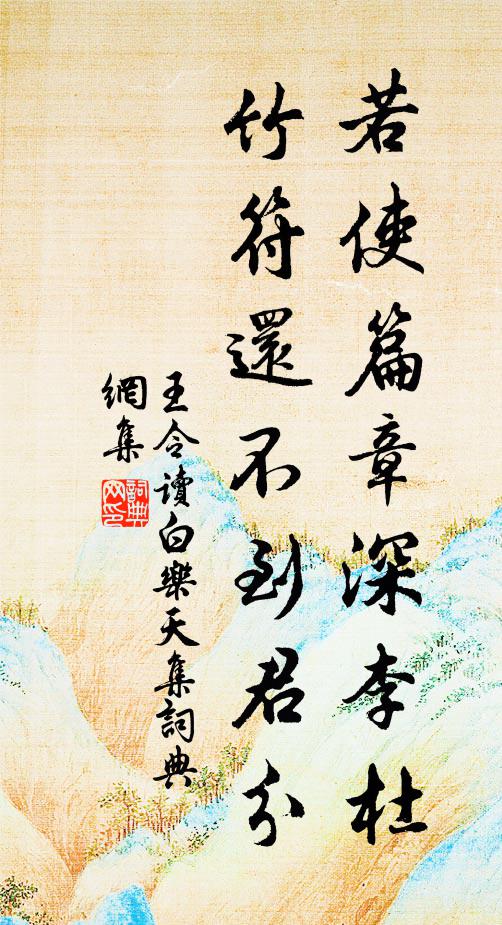 若使篇章深李杜
竹符還不到君分
王令讀白樂天集詞典
網集
詞典
网印